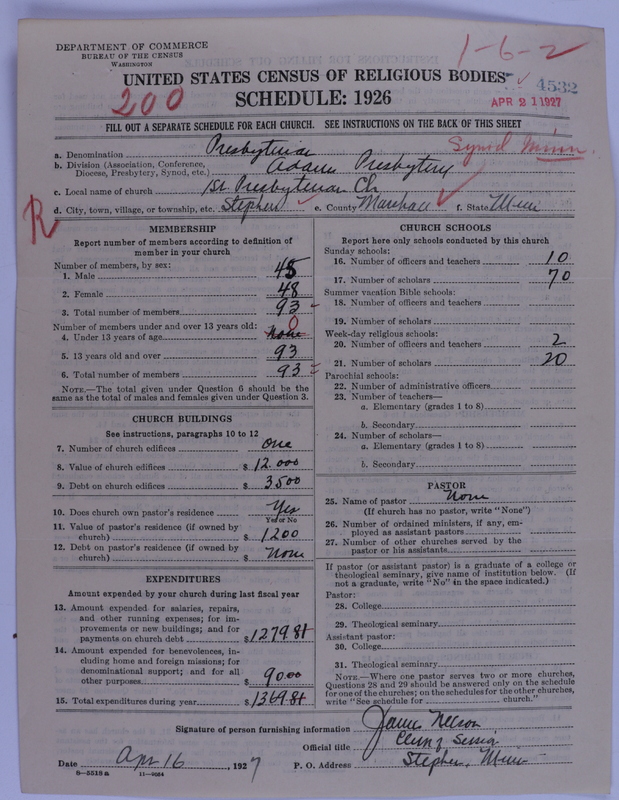 DEPARTMENT OF COMMERCE
BUREAU OF THE CENSUS
WASHINGTON
1-6-2
UNITED STATES CENSUS OF RELIGIOUS BODIES
4532
200
SCHEDULE: 1926
APR 21 1927
FILL OUT A SEPARATE SCHEDULE FOR EACH CHURCH. SEE INSTRUCTIONS ON THE BACK OF THIS SHEET
Synod Minn.
a. Denomination Presbyterian
b. Division (Association, Conference, Diocese, Presbytery, Synod, etc.) Adams Presbytery
c. Local name of church 1st Presbyterian Ch
d. City, town, village, or township, etc. Stephen e. County Marshall f. State Minn
R
MEMBERSHIP
Report number of members according to definition of
member in your church
Number of members, by sex:
1. Male 45
2. Female 48
3. Total number of members 93
Number of members under and over 13 years old:
4. Under 13 years of age None 0
5. 13 years old and over 93
6. Total number of members 93
NOTE.—The total given under Question 6 should be
same as the total of males and females given under Question 3.
CHURCH BUILDINGS
See instructions, paragraphs 10 to 12
7. Number of church edifices One
8. Value of church edifices $ 12.000
9. Debt on church edifices $ 3500
10. Does church own pastor's residence Yes
Yes or No
11. Value of pastor's residence (if owned by
church) $ 1200
12. Debt on pastor's residence (if owned by
church) $ None
EXPENDITURES
Amount expended by your church during last fiscal year
13. Amount expended for salaries, repairs,
and other running expenses; for im-
provements or new buildings; and for
payments on church debt $ 1279.81
14. Amount expended for benevolences, in-
cluding home and foreign missions; for
denominational support; and for all
other purposes $ 90.00
15. Total expenditures during year $ 1369.81
CHURCH SCHOOLS
Report here only schools conducted by this church
Sunday schools:
16. Number of officers and teachers 10
17. Number of scholars 70
Summer vacation Bible schools:
18. Number of officers and teachers
19. Number of scholars
Week-day religious schools:
20. Number of officers and teachers 2
21. Number of scholars 20
Parochial schools:
22. Number of administrative officers
23. Number of teachers—
a. Elementary (grades 1 to 8)
b. Secondary
24. Number of scholars—
a. Elementary (grades 1 to 8)
b. Secondary
PASTOR
25. Name of pastor None
(If church has no pastor, write "None")
26. Number of ordained ministers, if any, em-
ployed as assistant pastors
27. Number of other churches served by the
pastor or his assistants
If pastor (or assistant pastor) is a graduate of a college or
theological seminary, give name of institution below. (If
not a graduate, write "No" in the space indicated.)
Pastor:
28. College
29. Theological seminary
Assistant pastor:
30. College
31. Theological seminary
NOTE.—Where one pastor serves two or more churches,
Questions 28 and 29 should be answered only on the schedule
for one of the churches; on the schedules for the other churches,
write "See schedule for church."
Signature of person furnishing information Nelson
Official title Session
Date Apr 16, 1927 P. O. Address Stephen, Minn
8—5518a 11—9034